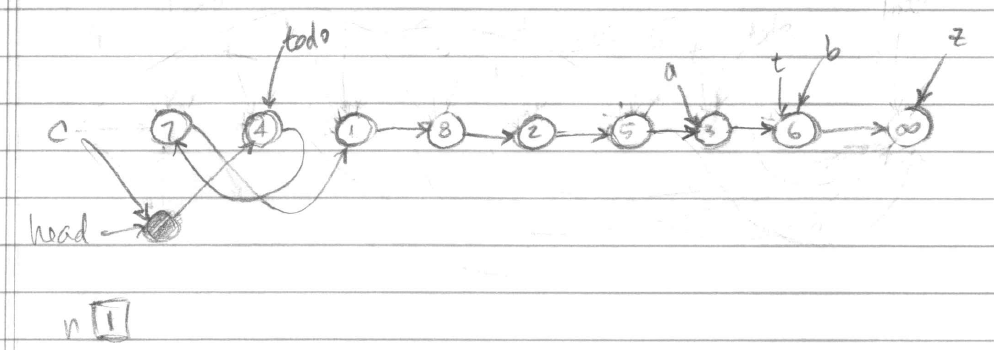 todo
a t b z
c 7 4 1 8 2 5 3 6 ∞
head
n 1